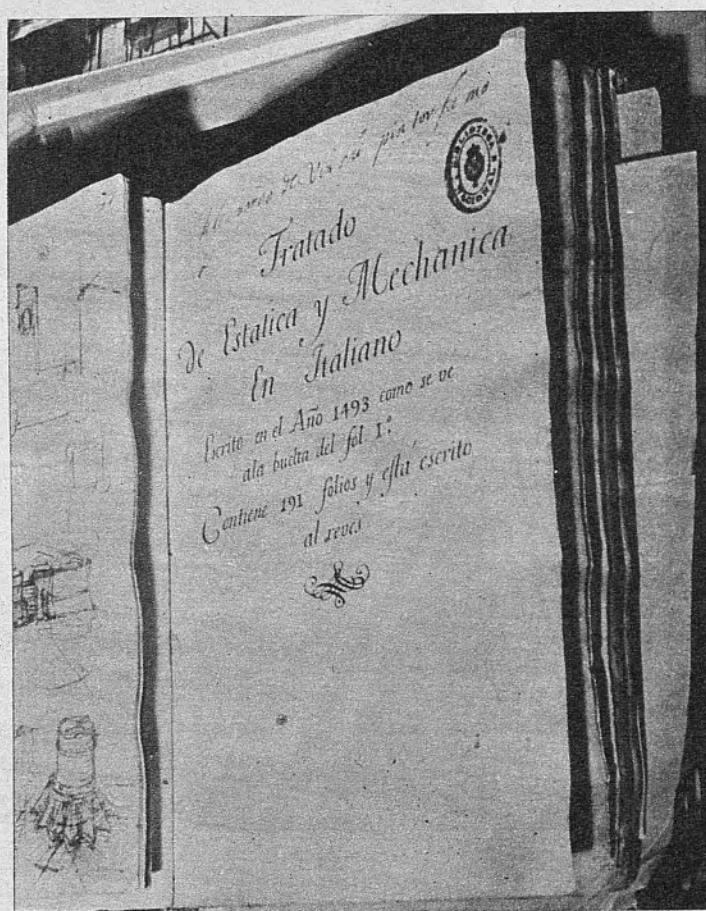 de Vinci pintor fa mo
BIBLIOTECA NACIONAL
Tratado
de Estatica y Mechanica
En Italiano
Escrito en el Año 1493 como se ve
ala buelta del fol 1º
Contiene 191 folios y esta escrito
al reves